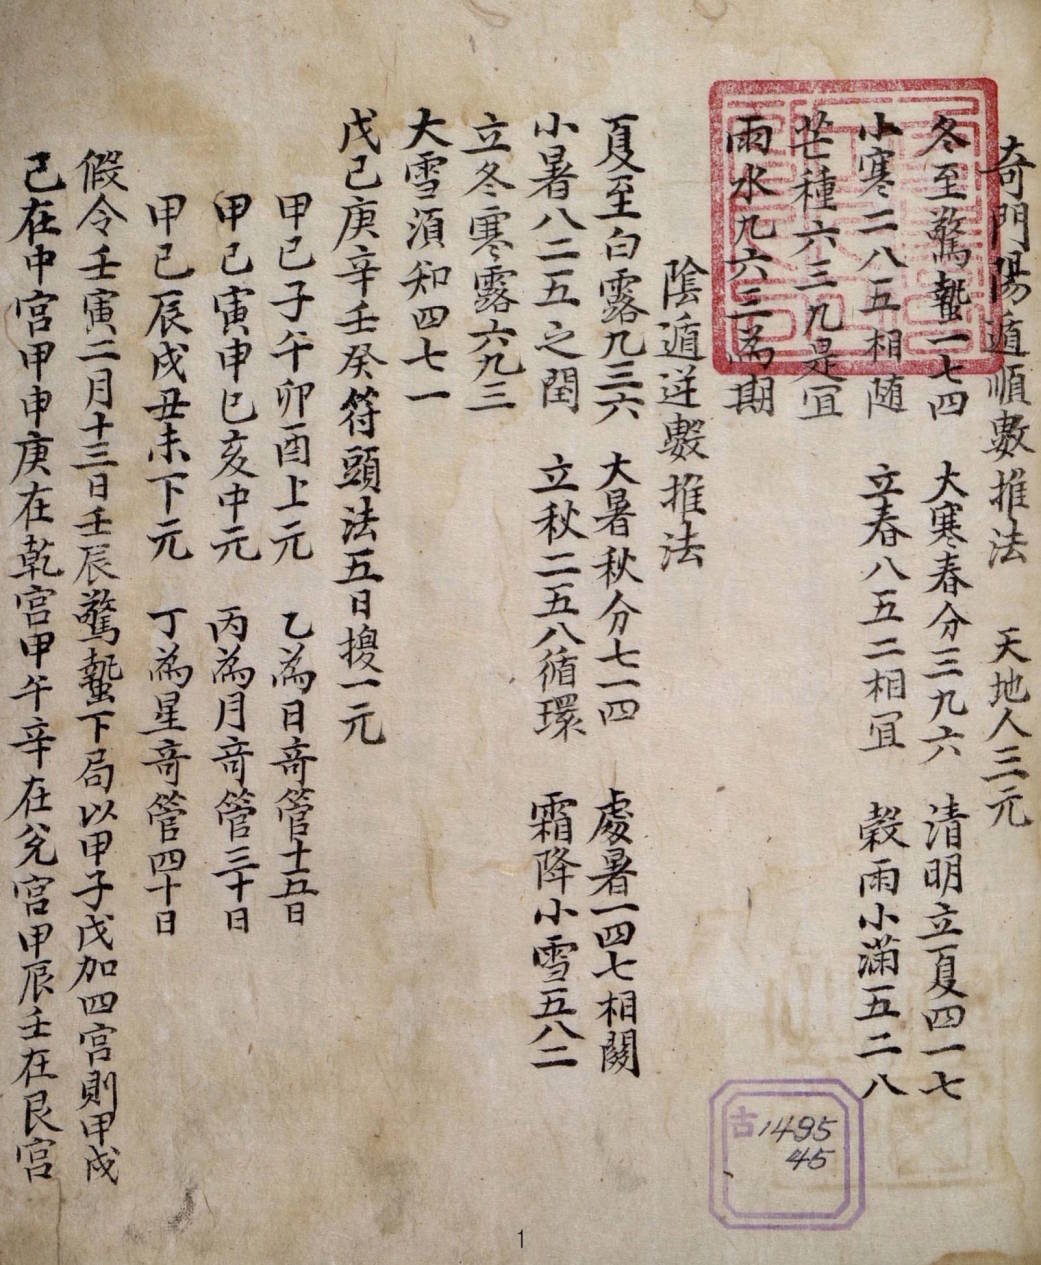 奇門陽遁順數推法　天地人三元
冬至驚蟄一七四　大寒春分三九六　清明立夏四一七
小寒二八五相随　立春八五二相冝　穀雨小滿五二八
芒種六三九是冝
雨水九六三為期
陰遁逆數推法
夏至白露九三六　大暑秋分七一四　處暑一四七相關
小暑八二五之間　立秋二五八循環　霜降小雪五八二
立冬寒露六九三
大雪湏知四七一
戊己庚辛壬癸符頭法五日換一元
甲己子午卯酉上元　乙為日竒管十五日
甲己寅申巳亥中元　丙為月竒管三十日
甲己辰戌丑未下元　丁為星竒管四十日
假令壬寅二月十三日壬辰驚蟄下局以甲子戊加四宮則甲戌
己在中宮甲申庚在乾宮甲午辛在兌宮甲辰壬在艮宮
古1495
45
1